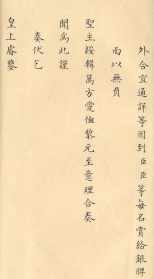 外合宜通詳等因到臣臣等每名賞給銀牌
而以無負
聖主綏輯萬方愛恤黎元至意理合奏
聞為此謹
奏伏乞
皇上睿鑒